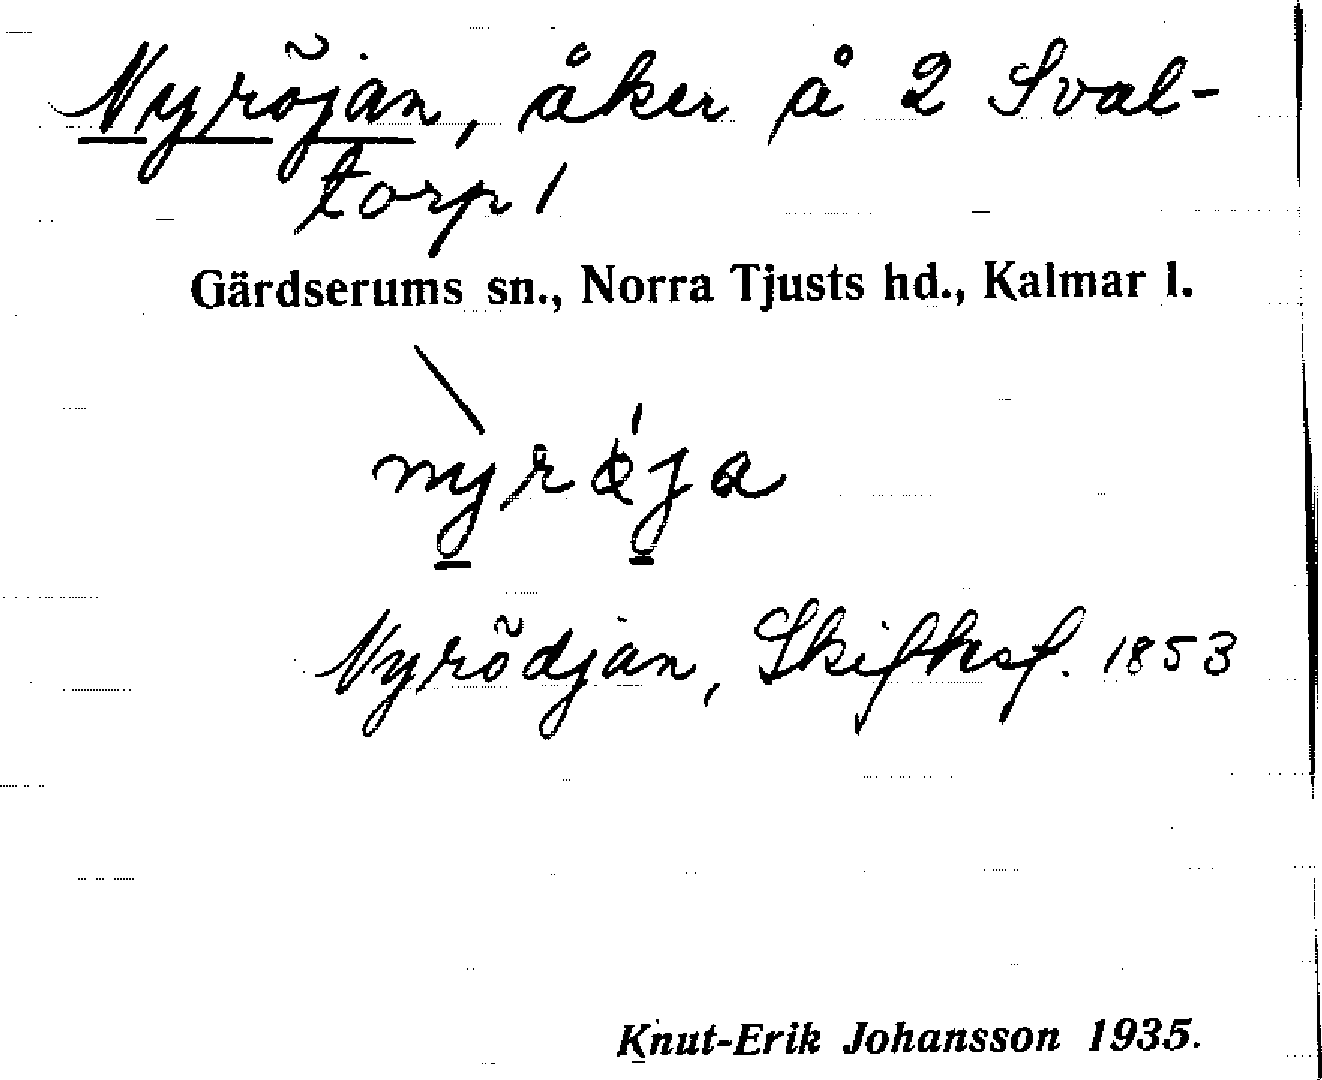 Nyröjan, åker å 2 Sval-
torp 1
Gärdserums sn., Norra Tjusts hd., Kalmar l.
nyröja
Nyrödjan, Skifksf. 1853
Knut-Erik Johansson 1935.